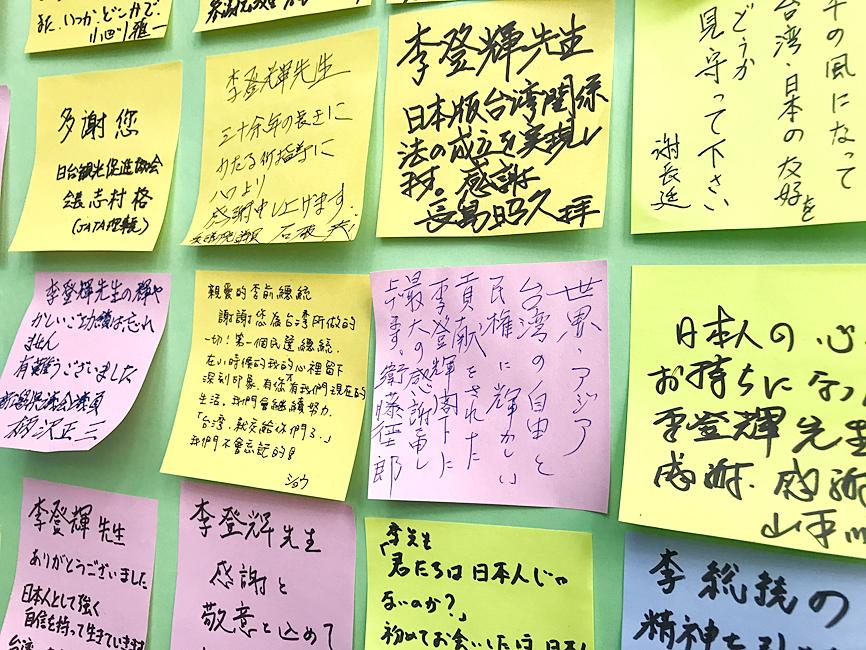 また、いつか、どこかで、
李登輝先生
日本版台湾関係
法の成立を実現し
ます。感謝
長島昭久 拝
千の風になって
台湾・日本の友好を
どうか
見守って下さい
謝長廷
多謝您
日台観光促進協会
会長 志村 格
(JATA理事長)
李登輝先生
三十余年の長きに
わたる御指導に
心より
感謝申し上げます。
李登輝先生の輝や
かしいご功績は忘れ
ません
有難うございました
柄沢正三
親愛的李前總統
謝謝您為台灣所做的
一切!第一個民選總統,
在小時候的我的心裡留下
深刻印象,有你才有我們現在的
生活,我們會繼續努力,
「台灣,就交給你們了。」
我們不會忘記的!
ショウ
世界・アジア
台湾の自由と
民権に輝かしい
貢献をされた
李登輝閣下に
最大の感謝申し
上げます。衛藤征士郎
日本人の心
お持ちになっ
李登輝先生
感謝、感謝
李登輝先生
ありがとうございました
日本人として強く
自信を持って生きていきます
李登輝先生
感謝と
敬意を込めて
李先生
「君たちは日本人じゃ
ないのか?」
初めてお会いした
李総統の
精神を